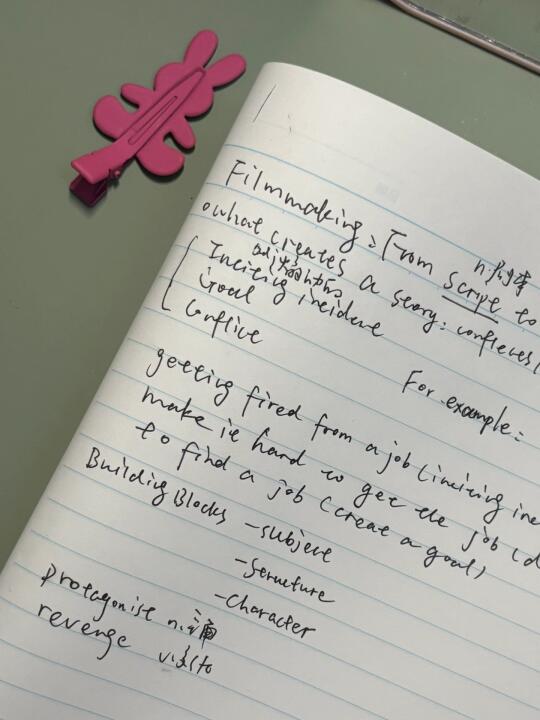 Filmmaking: From script to
what creates a story: conflicts
Inciting incident
Goal
Conflict
For example:
getting fired from a job (inciting
make it hard to get the job
to find a job (create a goal)
Building Blocks - subject
- Structure
- Character
protagonist n.
revenge v.